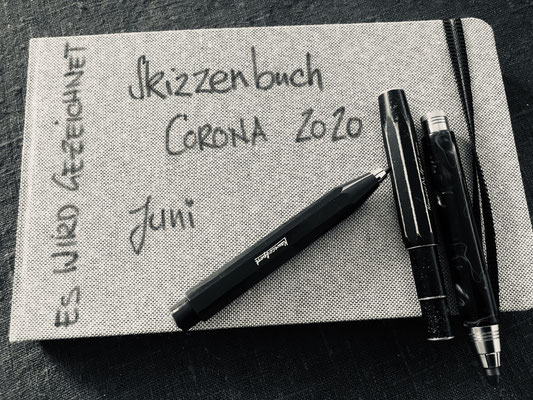 ES WIRD GEZEICHNET
Skizzenbuch
CORONA 2020
Juni
Kaweco Sport